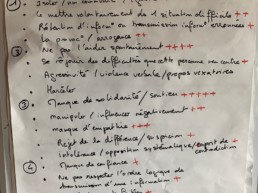 ① Isoler / ou
le mettre volontairement de la situation difficile ++
Rétention d'inform° ou transmission inform° erronées +
La provoc° / arrogance ++
③ Ne pas l'aider spontanément ++++
Se réjouir des difficultés que cette personne rencontre +
Agressivité / violence verbale / propos vexatoires
Harceler
③ Manque de solidarité / soutien ++++
Manipuler / influencer négativement ++
manque d'empathie +++
Rejet de la différence / suspicion ++
intolérance / opposition systématique / esprit de contradiction
④ Manque de confiance +
Ne pas respecter l'ordre logique de
transmission d'une information +